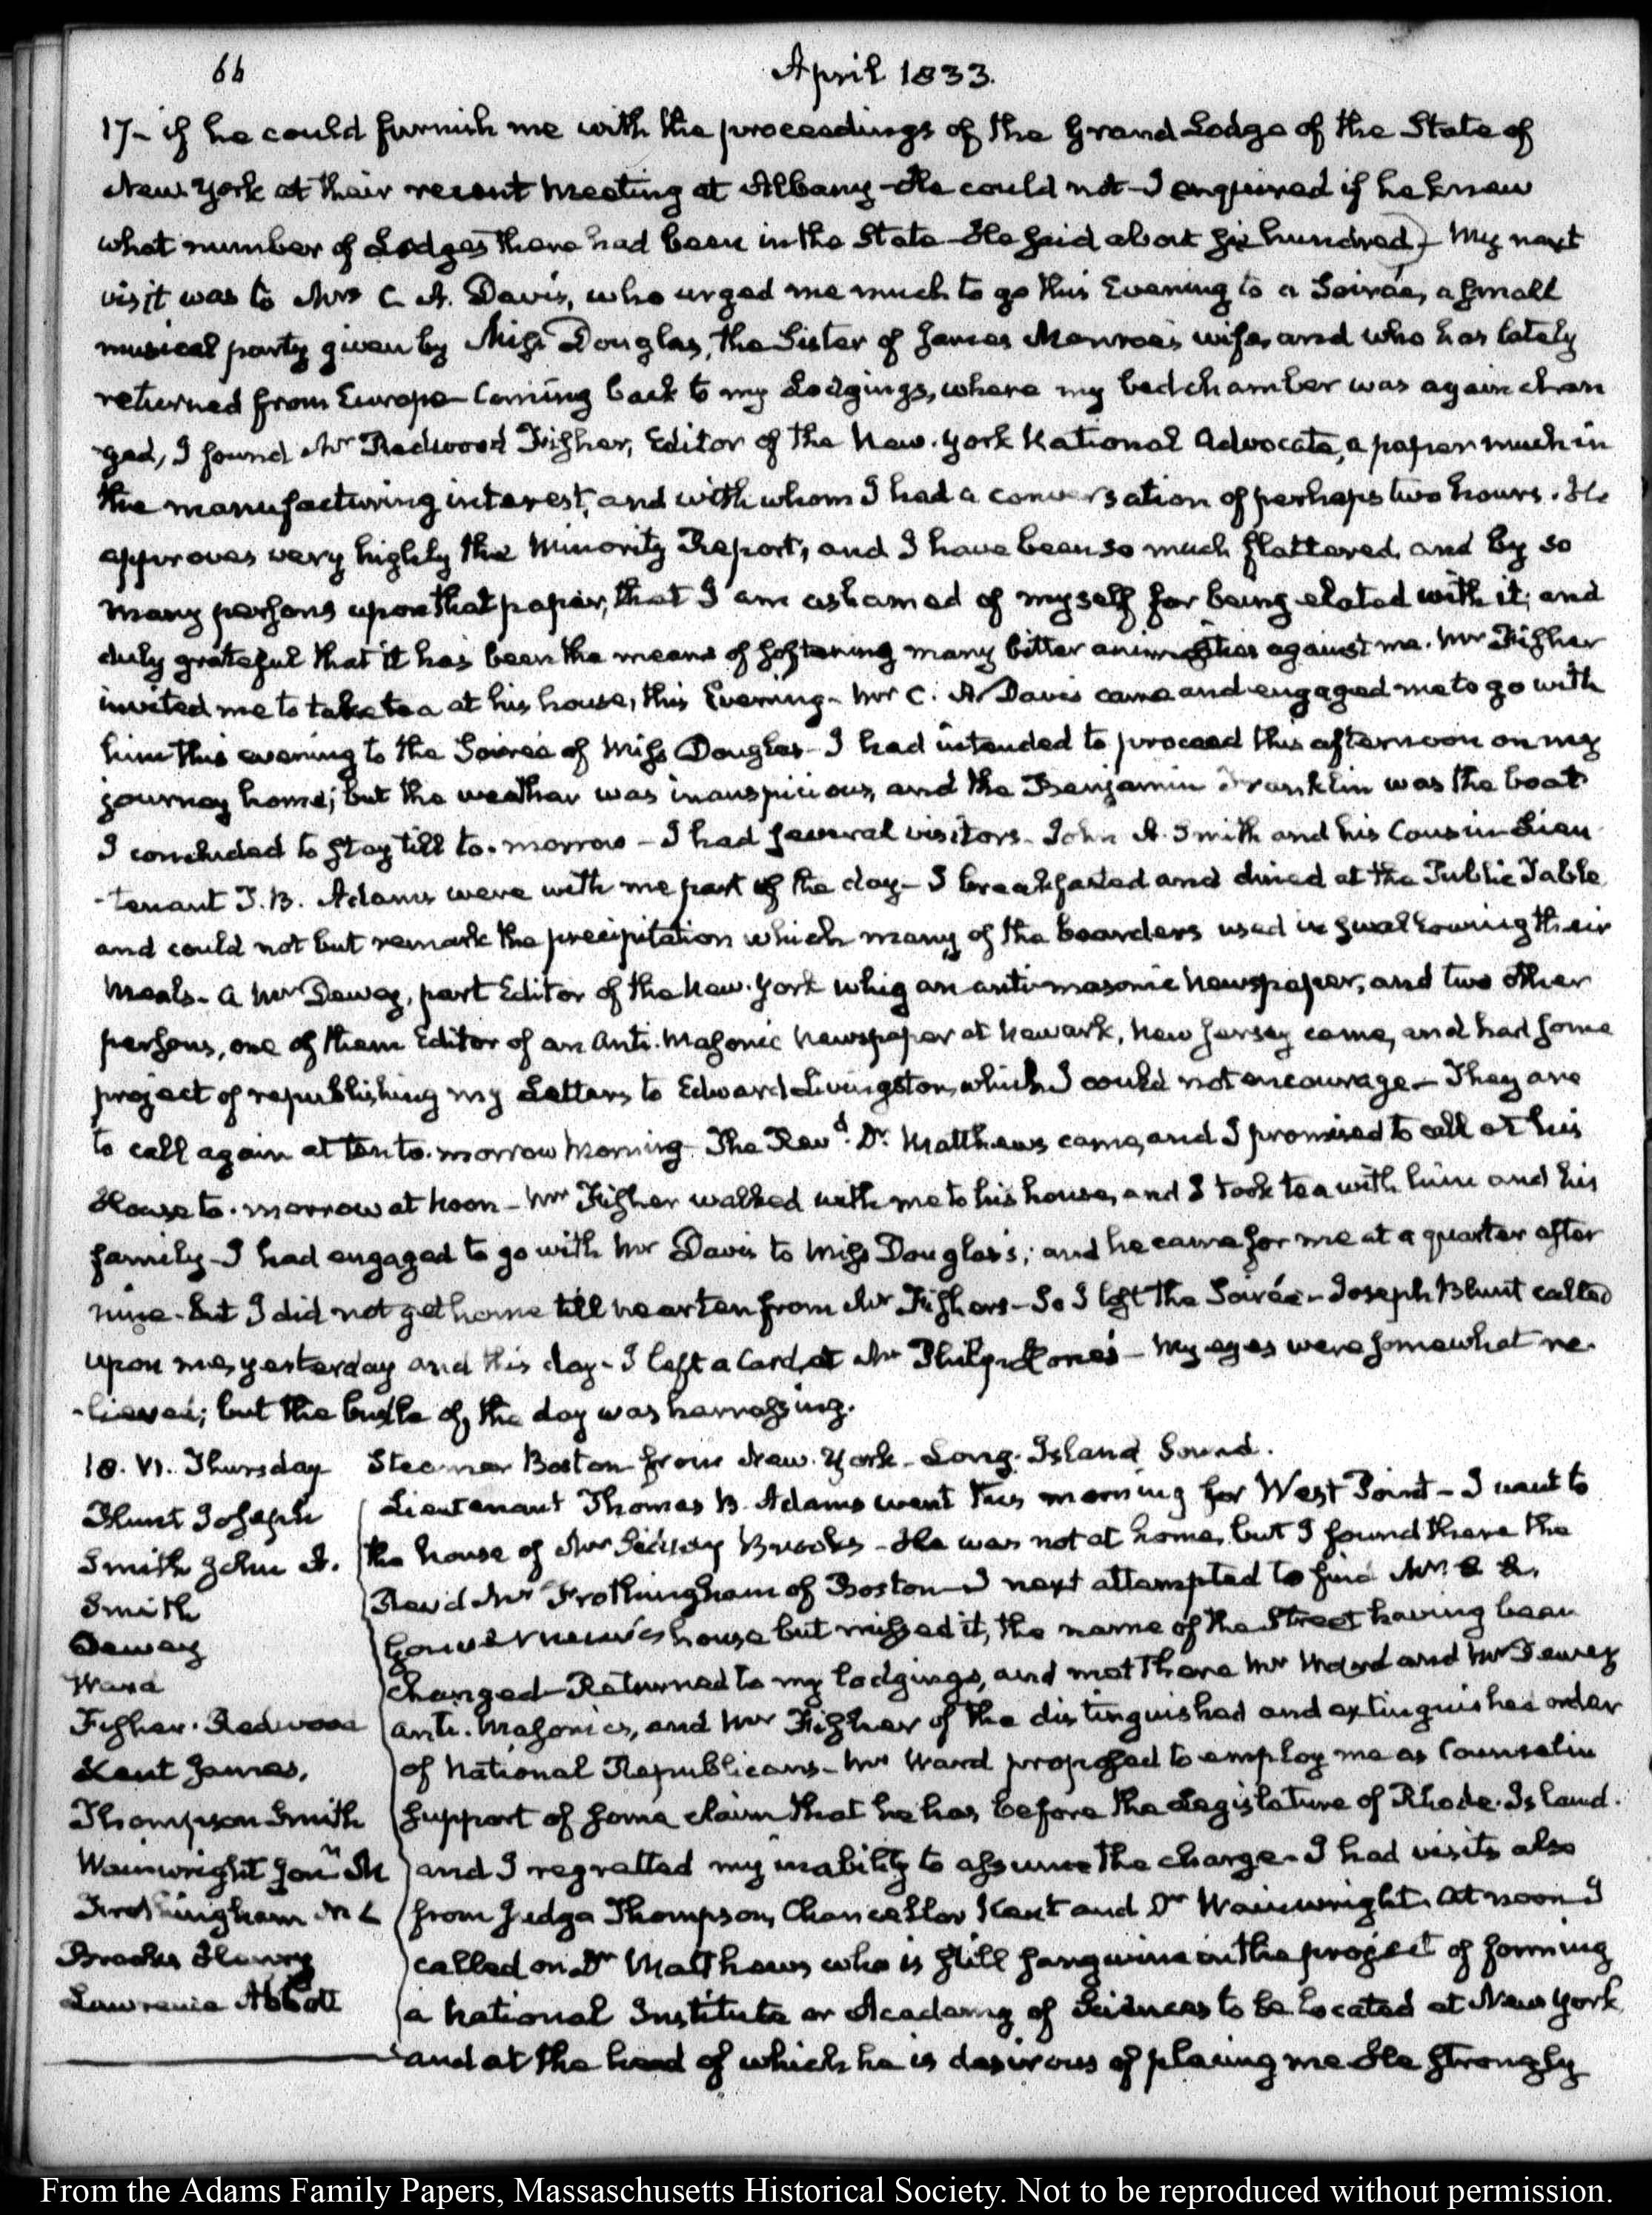 66
April 1833.
17- if he could furnish me with the proceedings of the Grand Lodge of the State of
New York at their recent meeting at Albany - He could not - I enquired if he knew
what number of Lodges there had been in the State - He said about six hundred - My next
visit was to Mrs C. A. Davis, who urged me much to go this Evening to a Soirée, a small
musical party given by Miss Douglas, the Sister of James Monroe's wife, and who has lately
returned from Europe - Coming back to my Lodgings, where my bedchamber was again chan
-ged, I found Mr Redwood Fisher, Editor of the New-York National Advocate, a paper much in
the manufacturing interest, and with whom I had a conversation of perhaps two hours. He
approves very highly the Minority Report, and I have been so much flattered, and by so
many persons upon that paper, that I am ashamed of myself for being elated with it; and
duly grateful that it has been the means of softening many bitter animosities against me. Mr Fisher
invited me to take tea at his house, this Evening - Mr C. A. Davis came and engaged me to go with
him this evening to the Soirée of Miss Douglas - I had intended to proceed this afternoon on my
journey home; but the weather was inauspicious, and the Benjamin Franklin was the boat
I concluded to stay till to-morrow - I had several visitors - John A. Smith and his Cousin Lieu-
-tenant T. B. Adams were with me part of the day - I breakfasted and dined at the Public Table
and could not but remark the precipitation which many of the boarders used in swallowing their
meals - A Mr Dewey, part Editor of the New-York Whig an anti-masonic newspaper, and two other
persons, one of them Editor of an Anti-Masonic Newspaper at Newark, New Jersey came, and had some
project of republishing my Letters to Edward Livingston, which I could not encourage - They are
to call again at ten to-morrow morning. The Revd. Dr. Matthews came, and I promised to call at his
House to-morrow at noon - Mr Fisher walked with me to his house, and I took tea with him and his
family - I had engaged to go with Mr Davis to Miss Douglas's; and he came for me at a quarter after
nine - but I did not get home till near ten from Mr Fisher's - So I lost the Soirée - Joseph Blunt called
upon me, yesterday and this day - I left a Card, at Mr Philip Hone's - My eyes were somewhat re-
-lieved; but the bustle of the day was harrassing.
18. VI. Thursday Steamer Boston from New-York - Long-Island Sound.
Blunt Joseph
Smith John A.
Smith
Dewey
Ward
Fisher. Redwood
Kent James,
Thompson Smith
Wainwright Jonn M
Frothingham N L
Brooks Henry
Lawrence Abbott
Lieutenant Thomas B. Adams went this morning for West Point - I went to
the house of Mr Sidney Brooks - He was not at home, but I found there the
Revd Mr Frothingham of Boston - I next attempted to find Mr
Gouverneur's house but missed it, the name of the Street having been
changed - Returned to my lodgings, and met there Mr Ward and Mr Dewey
anti-Masonics, and Mr Fisher of the distinguished and extinguished order
of National Republicans - Mr Ward proposed to employ me as Counsel in
support of some claim that he has before the Legislature of Rhode-Island.
and I regretted my inability to assume the charge - I had visits also
from Judge Thompson, Chancellor Kent and Dr Wainwright. At noon I
called on Dr Matthews who is still sanguine in the project of forming
a National Institute or Academy of Sciences to be located at New York,
and at the head of which he is desirous of placing me He strongly
From the Adams Family Papers, Massachusetts Historical Society. Not to be reproduced without permission.